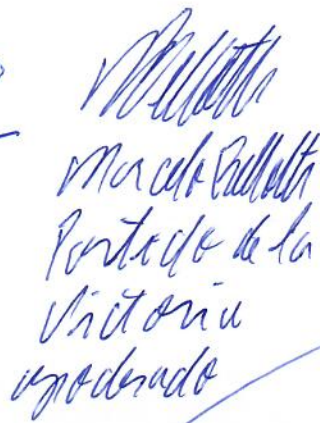 Marcelo
Partido de la
Victoria
apoderado